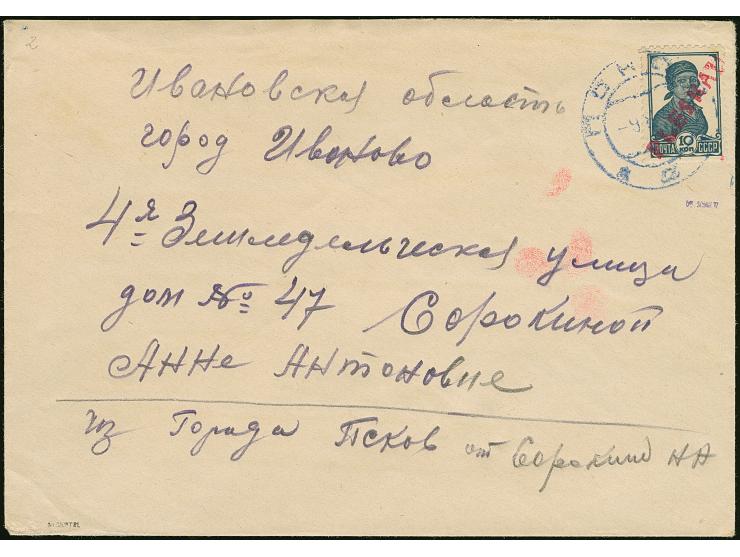 2
Ивановская область
город Иваново
4я Земледельческая улица
дом № 47 Сорокиной
Анне Антоновне
из Города Псков от Сорокин НА
ПОЧТА 10 КОП СССР